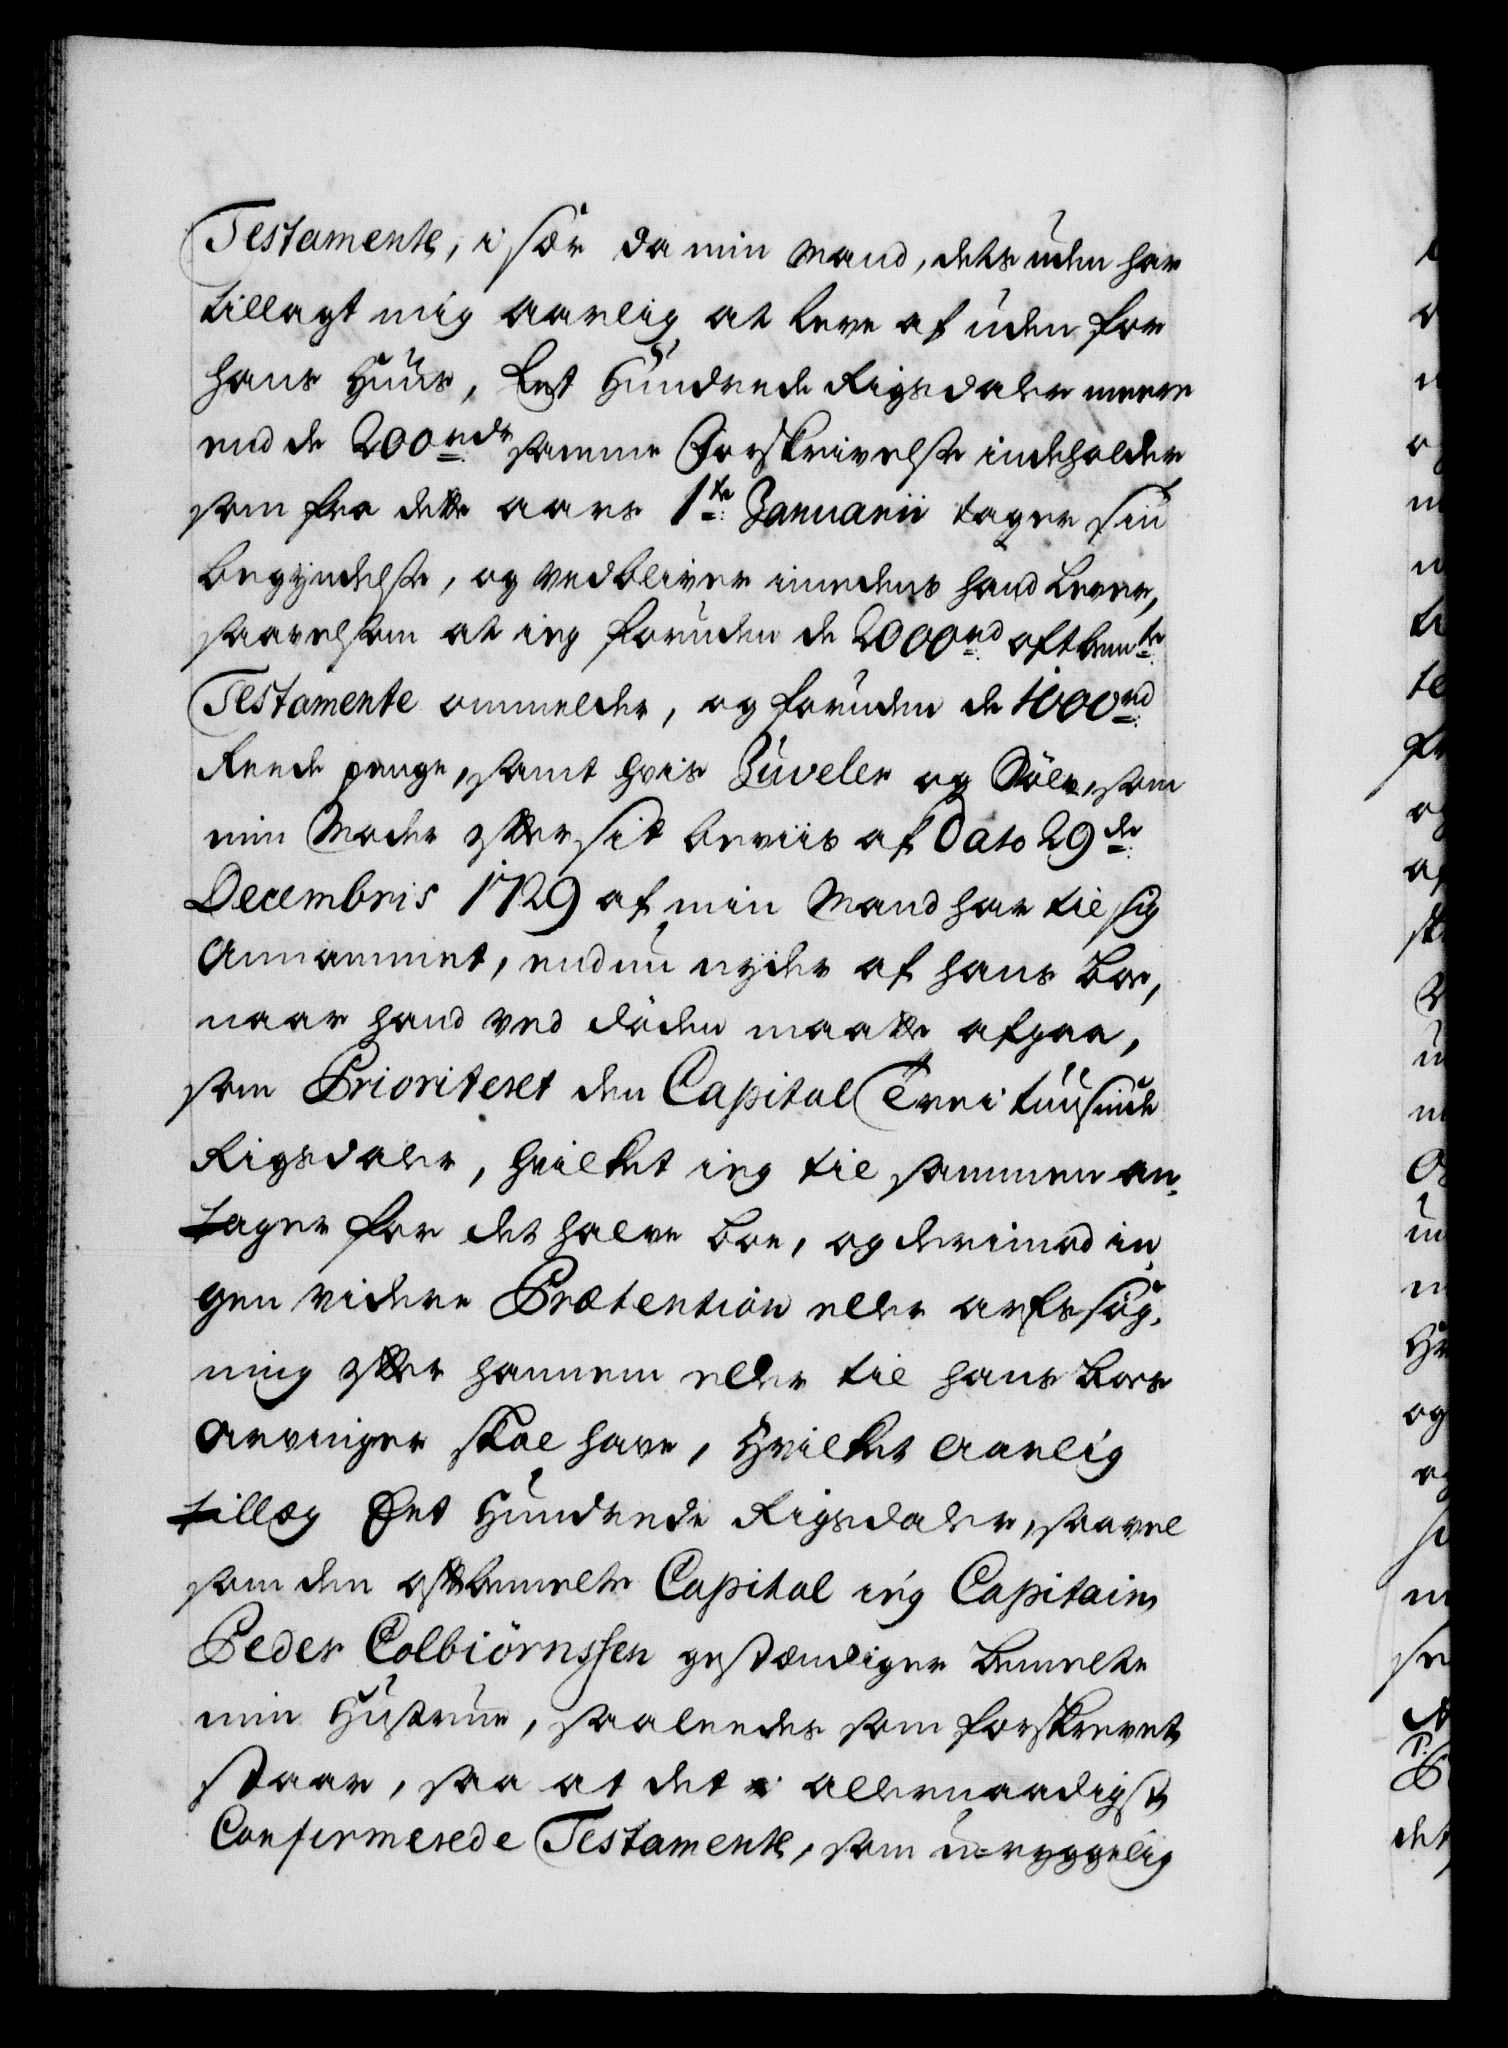 Testamente, i sær da min Mand, dets uden har
tillagt mig aarlig at leve af uden for
hans Huus, Eet Hundrede Rigsdaler meere
end de 200 rdr samme Forskrivelse indeholder
som fra dette aars 1te Januarii tager sin
begyndelse, og vedbliver imedens hand lever,
saavelsom at ieg foruden de 2000 rd oftbemte
Testamente ommelder, og foruden de 1000 rd
Reede penge, samt hvis Juveler og Sölv, som
min Moder efter sit beviis af Dato 29de
Decembris 1729 af min Mand har til sig
Annammet, endnu nyder af hans Boe,
naar hand ved döden maatte afgaa,
som Prioriteret den Capital Trei tuusinde
Rigsdaler, hvilket ieg til sammen an-
tager for det halve boe, og derimod in-
gen videre Prætention eller arfs søg-
ning efter hannem eller til hans boes
Arvinger skal have, Hvilket Aarlig
tillæg Eet Hundrede Rigsdaler, saavel
som den oftbemelte Capital ieg Capitain
Peder Colbiörnssen gestændiger bemelte
min Hustrue, saaleedes som forskrevet
staar, saa at det allernaadigst
Confirmerede Testamente, som u-ryggelig